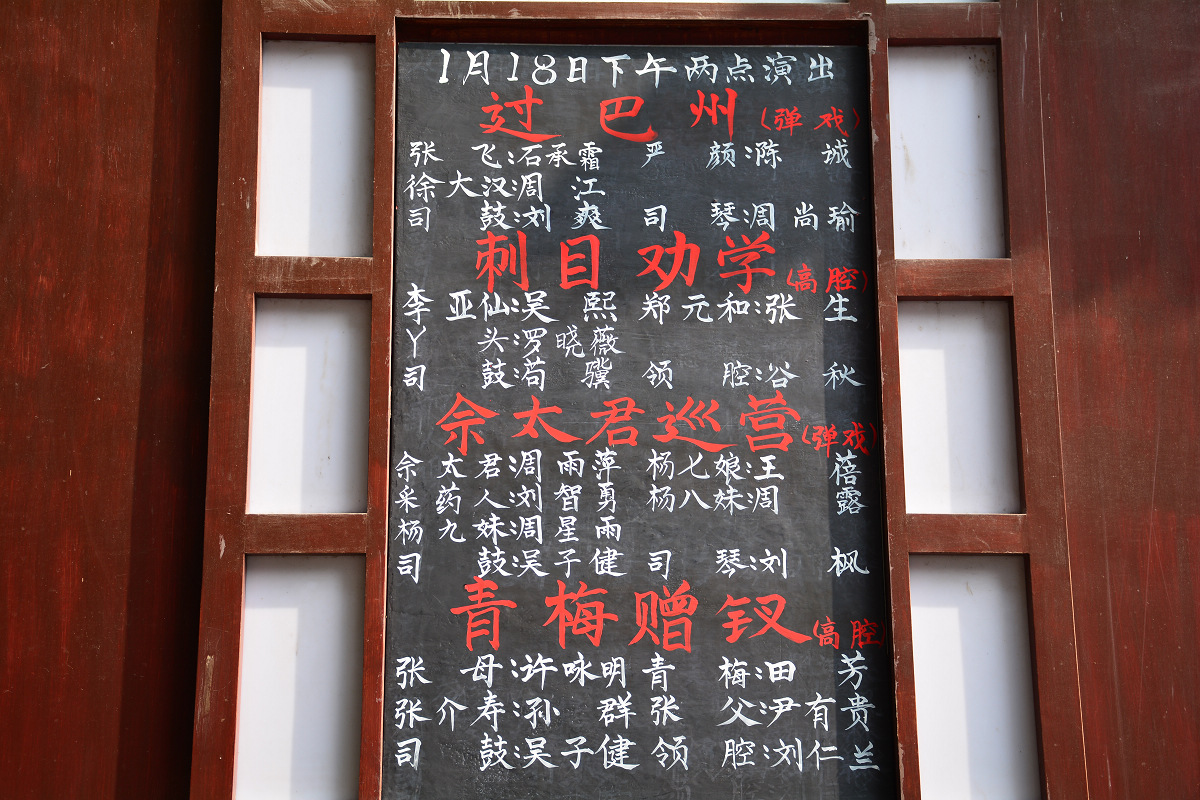 1月18日下午两点演出
过巴州(弹戏)
张飞:石承霜 严颜:滁城
徐大汉:周江
司鼓:刘爽 司琴:周尚瑜
刺目劝学(高腔)
李亚仙:吴熙 郑元和:张生
丫头:罗晓薇
司鼓:苟骥 领腔:谷秋
佘太君巡营(弹戏)
佘太君:周雨萍 杨七娘:王蓓
采药人:刘智勇 杨八妹:周露
杨九妹:周星雨
司鼓:吴子健 司琴:刘枫
青梅赠钗(高腔)
张母:许咏明 青梅:田芳
张介寿:孙群 张父:尹有贵
司鼓:吴子健 领腔:刘仁兰